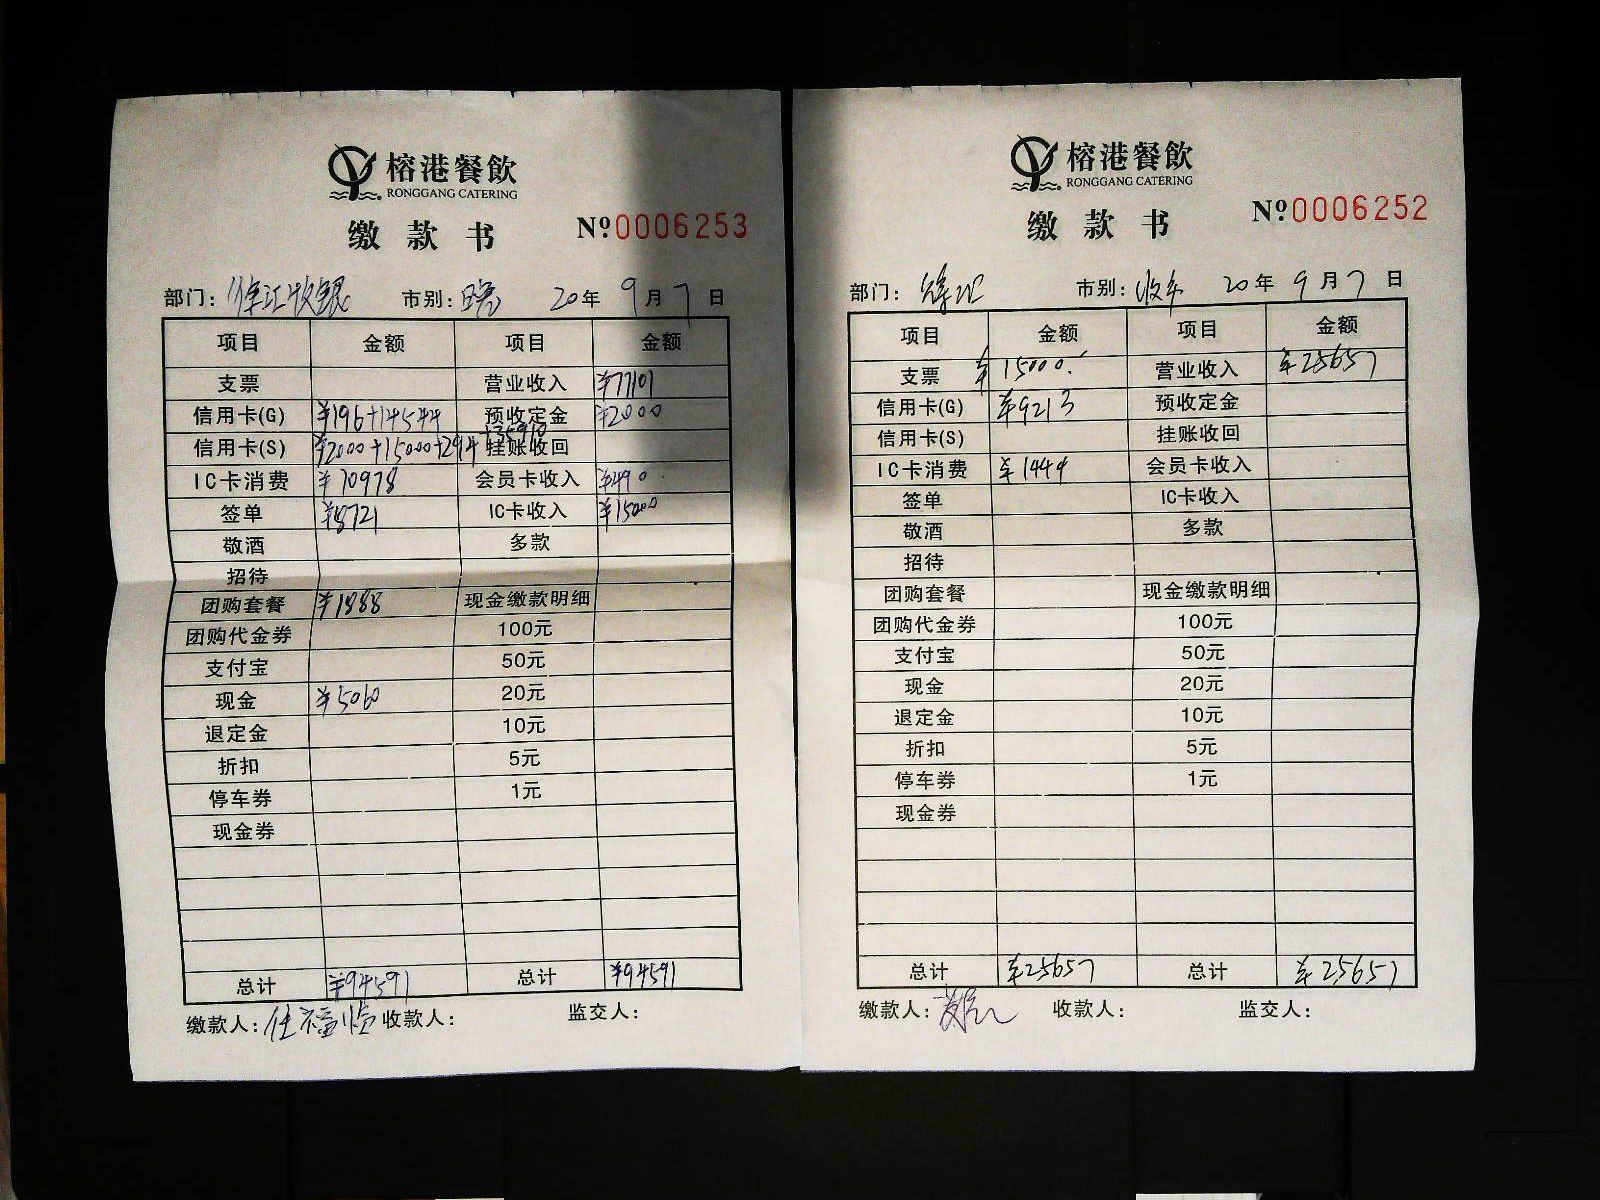 榕港餐飲
RONGGANG CATERING
缴款书
№0006253
部门: 徐汇收银 市别: 晚 20年 9月 7日
项目 金额 项目 金额
支票 营业收入 ¥77101
信用卡(G) ¥196+14544 预收定金 ¥2000
信用卡(S) ¥2000+15000+2914 挂账收回
IC卡消费 ¥70978 会员卡收入 ¥490
签单 ¥8721 IC卡收入 ¥15000
敬酒 多款
招待
团购套餐 ¥1888 现金缴款明细
团购代金券 100元
支付宝 50元
现金 ¥5060 20元
退定金 10元
折扣 5元
停车券 1元
现金券
总计 ¥94591 总计 ¥94591
缴款人: 收款人: 监交人:
榕港餐飲
RONGGANG CATERING
缴款书
№0006252
部门: 徐汇 市别: 收午 20年 9月 7日
项目 金额 项目 金额
支票 ¥15000. 营业收入 ¥25657
信用卡(G) ¥9213 预收定金
信用卡(S) 挂账收回
IC卡消费 ¥1444 会员卡收入
签单 IC卡收入
敬酒 多款
招待
团购套餐 现金缴款明细
团购代金券 100元
支付宝 50元
现金 20元
退定金 10元
折扣 5元
停车券 1元
现金券
总计 ¥25657 总计 ¥25657
缴款人: 收款人: 监交人: